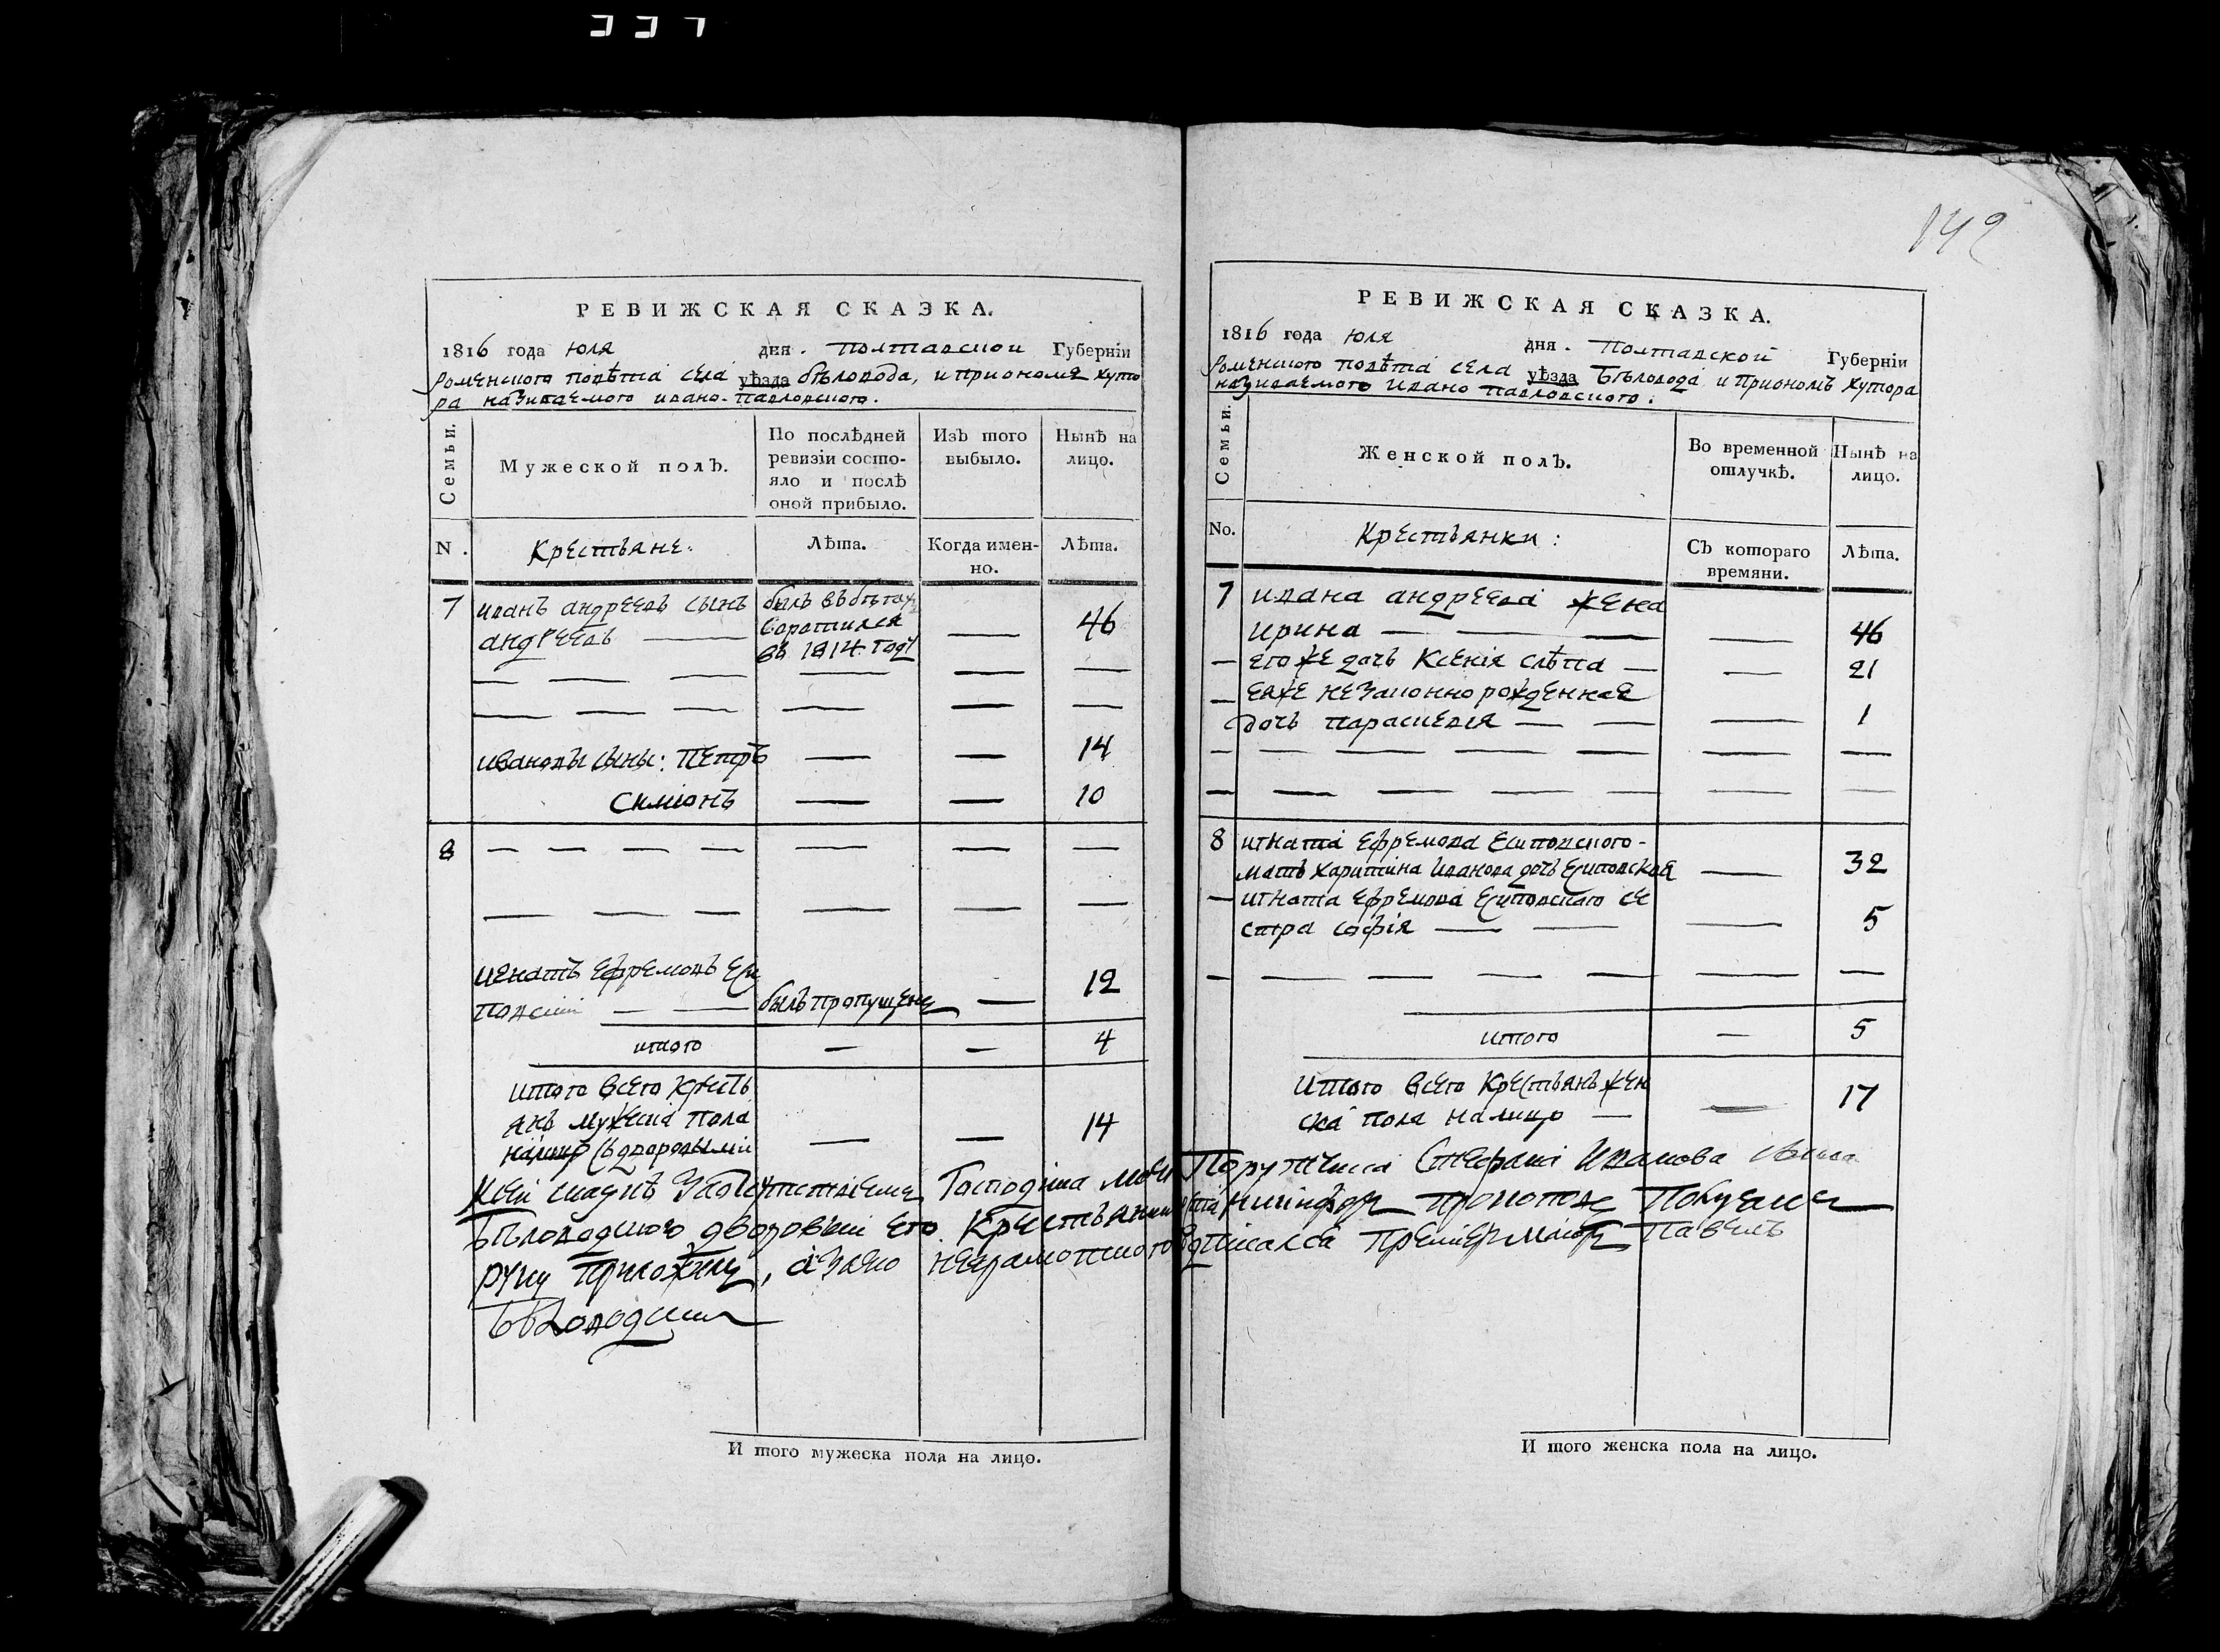 337
142
РЕВИЖСКАЯ СКАЗКА.
1816 года юля дня. Полтавскои Губернiи
Роменского повѣта села уѣзда бѣловода, и приономъ хуто
ра называемого ивано-павловского.
Семьи.
Мужеской полъ.
По послѣдней
ревизiи состо-
яло и послѣ
оной прибыло.
Изъ того
выбыло.
Нынѣ на
лицо.
N.
Крестьяне:
Лѣта.
Когда имен-
но.
Лѣта.
7 иванъ андреевъ сынъ
андреевъ
былъ въ бѣгахъ
воротился
въ 1814 году
46
ивановы сыны: Петръ 14
Симiонъ 10
8
игнатъ ефремовъ еси
повскiй былъ пропущенъ 12
итого 4
итого всего кресть
янъ мужеска пола
налицо съ дворовыми 14
РЕВИЖСКАЯ СКАЗКА.
1816 года юля дня. Полтавской Губернiи
Роменского повѣта села уѣзда Бѣловода и приономъ хутора
называемого ивано павловского.
Семьи.
Женской полъ.
Во временной
отлучкѣ.
Нынѣ на
лицо.
No.
Крестьянки:
Съ котораго
времяни.
Лѣта.
7 ивана андреева жена
ирина 46
его же дочь Ксенiя слѣпа 21
ея же незаконно рожденная
дочь параскевiя 1
8 игната ефремова есиповского
мать харитина иванова дочь есиповская 32
игната ефремова есиповскаго се
стра софiя 5
итого 5
итого всего крестьянъ жен
ска пола налицо 17
сказкѣ Господина Поручика Стефана Иванова сына
Бѣловодского дворовый его крестьянинъ прокоповъ
руку приложилъ, а за его неграмотного Премiеръ Маiоръ Павелъ
Бѣловодскiй
И того мужеска пола на лицо.
И того женска пола на лицо.